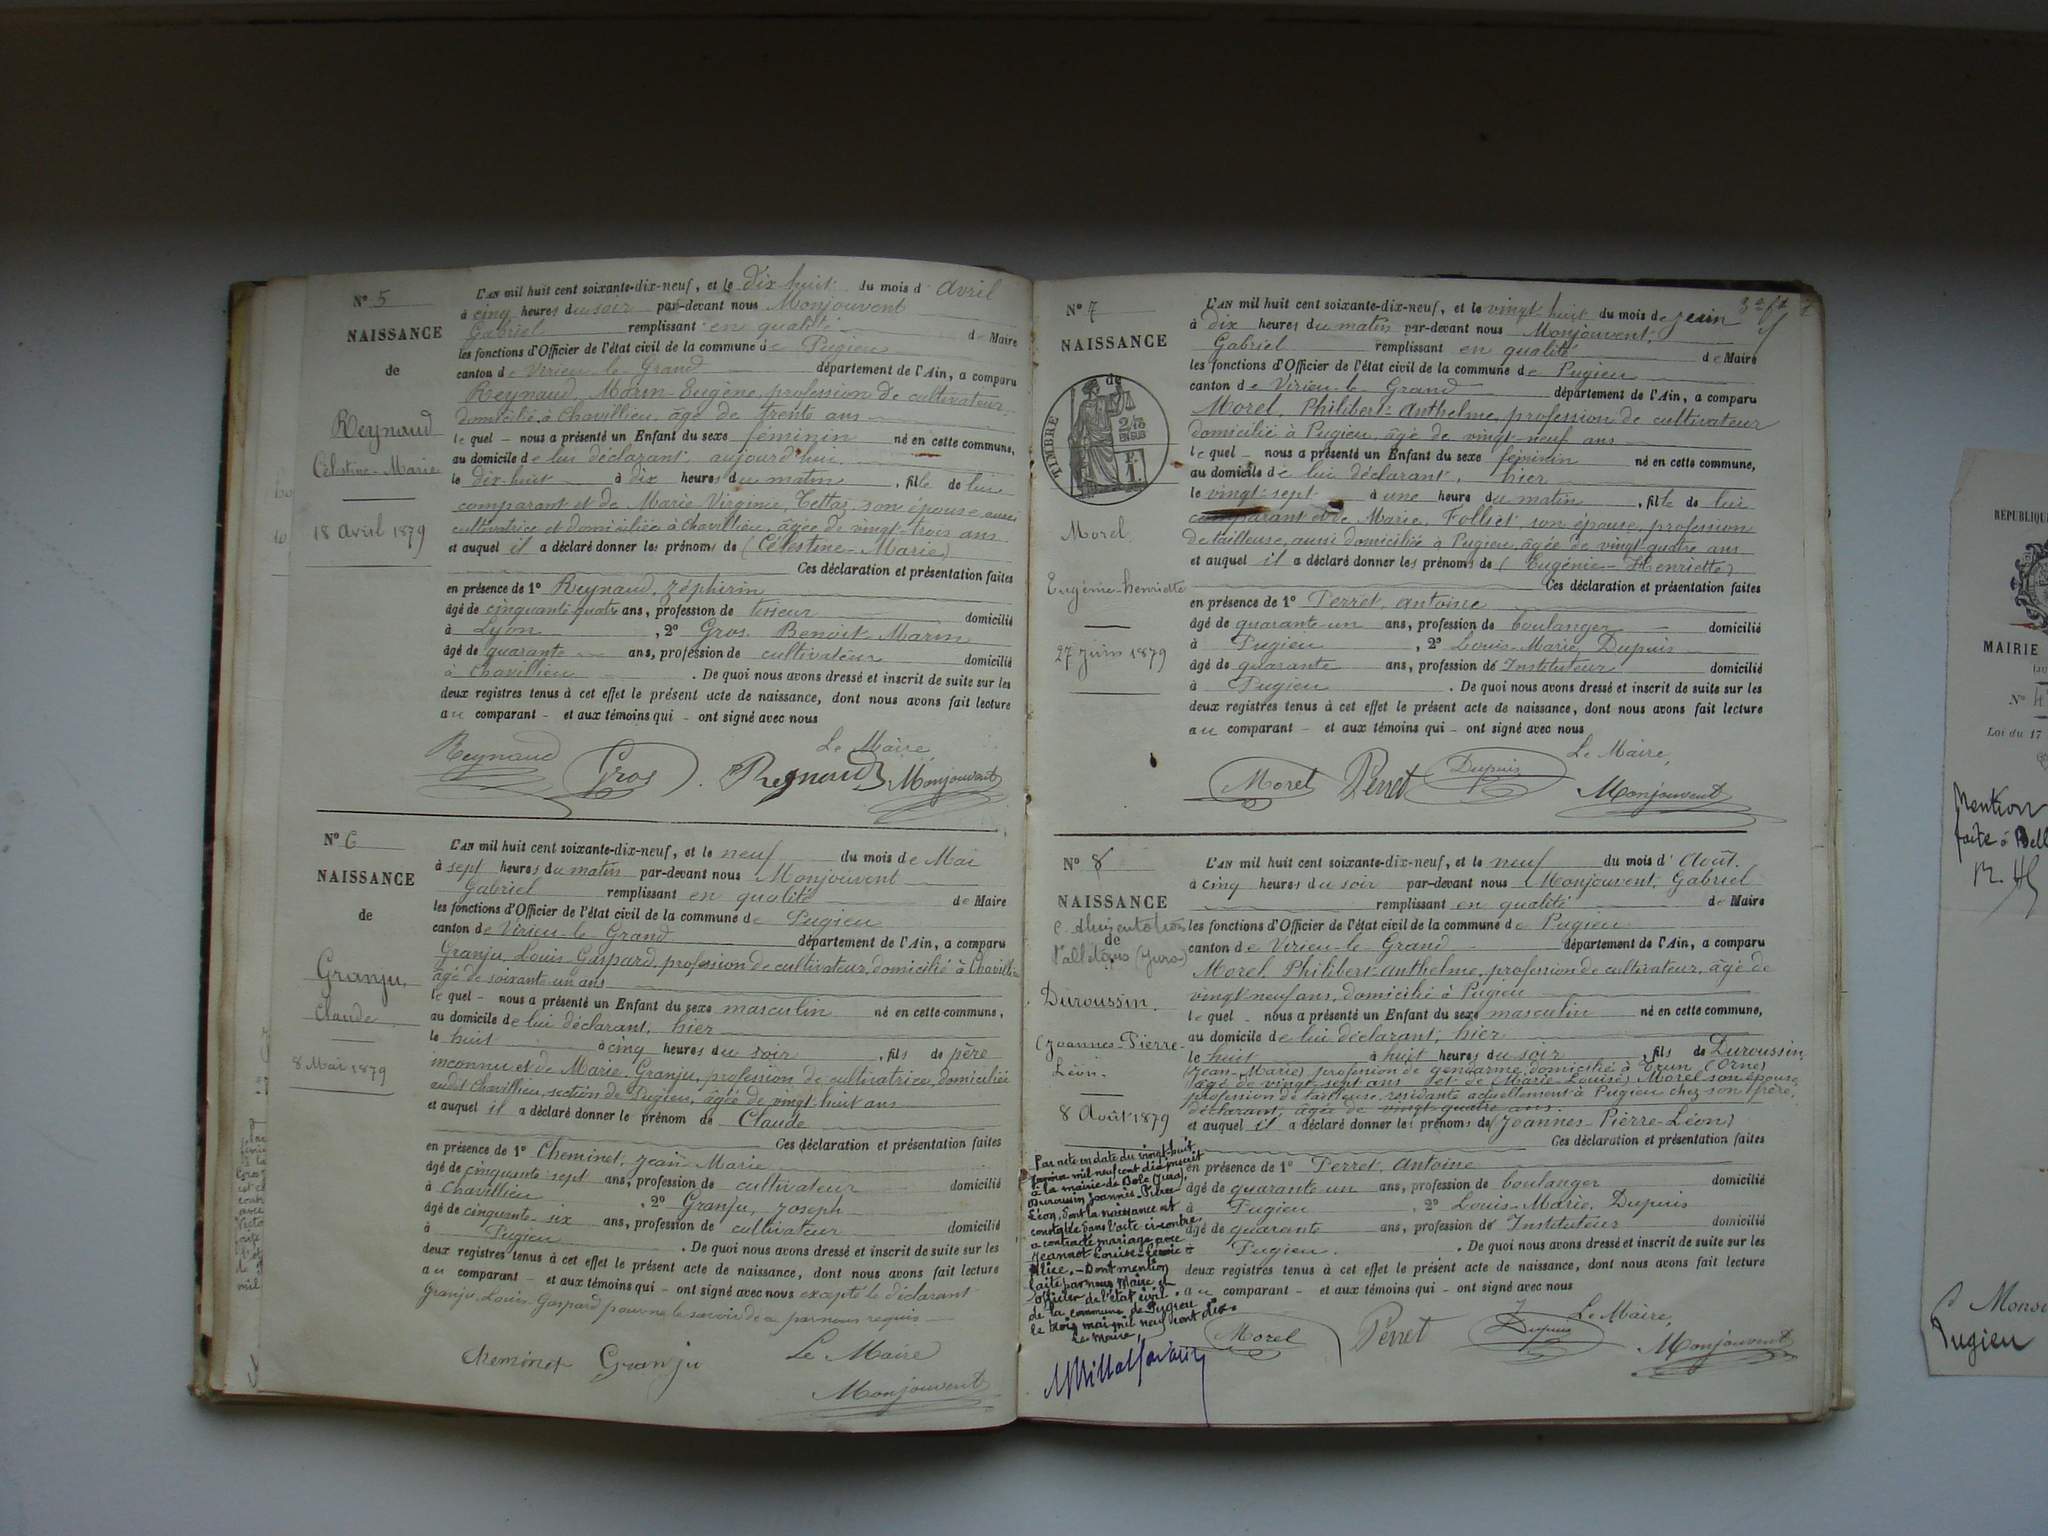 N° 5
NAISSANCE
de
Reynaud
Célestine-Marie
18 Avril 1879
L'AN mil huit cent soixante-dix-neuf, et le dix huit du mois d'Avril
à cinq heures du soir par-devant nous Monjouvent
Gabriel remplissant en qualité de Maire
les fonctions d'Officier de l'état civil de la commune de Pugieu
canton de Virieu-le-Grand département de l'Ain, a comparu
Reynaud, Marin-Eugène, profession de cultivateur,
domicilié à Chavillieu, âgé de trente ans
lequel - nous a présenté un Enfant du sexe féminin né en cette commune,
au domicile de lui déclarant aujourd'hui
le dix-huit à dix heures du matin, fille de lui
comparant et de Marie Virginie, Tettaz, son épouse, aussi
cultivatrice et domiciliée à Chavillieu, âgée de vingt-trois ans
et auquel il a déclaré donner les prénoms de (Célestine-Marie)
Ces déclaration et présentation faites
en présence de 1° Reynaud, Zéphirin
âgé de cinquante quatre ans, profession de tisseur domicilié
à Lyon, 2° Gros, Benoit Marin
âgé de quarante ans, profession de cultivateur domicilié
à Chavillieu. De quoi nous avons dressé et inscrit de suite sur les
deux registres tenus à cet effet le présent acte de naissance, dont nous avons fait lecture
au comparant - et aux témoins qui - ont signé avec nous
Le Maire,
Reynaud Gros Reynaud Monjouvent
N° 6
NAISSANCE
de
Granju,
Claude
8 Mai 1879
L'AN mil huit cent soixante-dix-neuf, et le neuf du mois de Mai
à sept heures du matin par-devant nous Monjouvent
Gabriel remplissant en qualité de Maire
les fonctions d'Officier de l'état civil de la commune de Pugieu
canton de Virieu-le-Grand département de l'Ain, a comparu
Granju, Louis-Gaspard, profession de cultivateur, domicilié à Chavillieu
âgé de soixante-un ans
lequel - nous a présenté un Enfant du sexe masculin né en cette commune,
au domicile de lui déclarant, hier
le huit à cinq heures du soir, fils de père
inconnu et de Marie Granju, profession de cultivatrice, domiciliée
audit Chavillieu, section de Pugieu, âgée de vingt-huit ans
et auquel il a déclaré donner le prénom de Claude
Ces déclaration et présentation faites
en présence de 1° Cheminet, Jean Marie
âgé de cinquante sept ans, profession de cultivateur domicilié
à Chavillieu, 2° Granju, Joseph
âgé de cinquante-six ans, profession de cultivateur domicilié
à Pugieu. De quoi nous avons dressé et inscrit de suite sur les
deux registres tenus à cet effet le présent acte de naissance, dont nous avons fait lecture
au comparant - et aux témoins qui - ont signé avec nous excepté le déclarant
Granju, Louis-Gaspard pour ne le savoir de ce par nous requis
Le Maire
Cheminet Granju Monjouvent
N° 7
NAISSANCE
de
TIMBRE
2/10
EN SUS
Morel
Eugénie-Henriette
27 Juin 1879
L'AN mil huit cent soixante-dix-neuf, et le vingt huit du mois de juin
à dix heures du matin par-devant nous Monjouvent,
Gabriel remplissant en qualité de Maire
les fonctions d'Officier de l'état civil de la commune de Pugieu
canton de Virieu-le-Grand département de l'Ain, a comparu
Morel, Philibert-Anthelme, profession de cultivateur
domicilié à Pugieu, âgé de vingt-neuf ans
lequel - nous a présenté un Enfant du sexe féminin né en cette commune,
au domicile de lui déclarant, hier
le vingt-sept à une heure du matin, fille de lui
comparant et de Marie, Folliet, son épouse, profession
de tailleuse, aussi domiciliée à Pugieu, âgée de vingt-quatre ans
et auquel il a déclaré donner les prénoms de (Eugénie-Henriette)
Ces déclaration et présentation faites
en présence de 1° Perret, Antoine
âgé de quarante-un ans, profession de boulanger domicilié
à Pugieu, 2° Louis-Marie, Dupuis
âgé de quarante ans, profession de Instituteur domicilié
à Pugieu. De quoi nous avons dressé et inscrit de suite sur les
deux registres tenus à cet effet le présent acte de naissance, dont nous avons fait lecture
au comparant - et aux témoins qui - ont signé avec nous
Le Maire,
Morel Perret Dupuis Monjouvent
N° 8
NAISSANCE
de
Duroussin,
Joannes-Pierre-
Léon.
8 Août 1879
Par acte en date du vingt-huit
à la mairie de Dole (Jura),
Duroussin Joannès-Pierre
Léon, dont la naissance est
constatée dans l'acte ci-contre
a contracté mariage avec
Jeannot Louise
Alice. - Dont mention
faite par nous Maire et
officier de l'état civil
de la commune de Pugieu
le trois mai mil neuf cent dix.
Le Maire,
L'AN mil huit cent soixante-dix-neuf, et le neuf du mois d'Août.
à cinq heures du soir par-devant nous Monjouvent, Gabriel
remplissant en qualité de Maire
les fonctions d'Officier de l'état civil de la commune de Pugieu
canton de Virieu-le-Grand département de l'Ain, a comparu
Morel, Philibert-Anthelme, profession de cultivateur, âgé de
vingt neuf ans, domicilié à Pugieu
lequel - nous a présenté un Enfant du sexe masculin né en cette commune,
au domicile de lui déclarant, hier
le huit à huit heures du soir, fils de Duroussin
(Jean-Marie) profession de gendarme, domicilié à Trun (Orne)
âgé de vingt-sept ans et de (Marie-Louise) Morel son épouse,
profession de tailleuse, résidante actuellement à Pugieu chez son frère,
déclarant, âgée de vingt-quatre ans.
et auquel il a déclaré donner les prénoms de (Joannes-Pierre-Léon)
Ces déclaration et présentation faites
en présence de 1° Perret, Antoine
âgé de quarante un ans, profession de boulanger domicilié
à Pugieu, 2° Louis-Marie, Dupuis
âgé de quarante ans, profession de Instituteur domicilié
à Pugieu. De quoi nous avons dressé et inscrit de suite sur les
deux registres tenus à cet effet le présent acte de naissance, dont nous avons fait lecture
au comparant - et aux témoins qui - ont signé avec nous
Le Maire,
Morel Perret Dupuis Monjouvent
RÉPUBLIQUE
MAIRIE
N°
Loi du 17
Mention
faite à
Pugieu